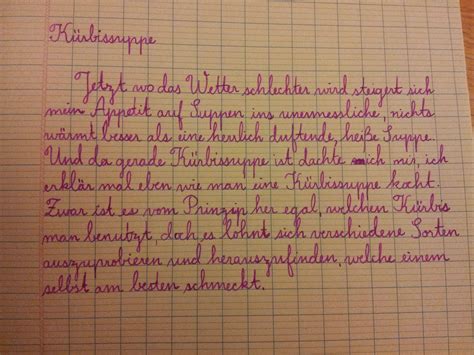 Kürbissuppe
Jetzt wo das Wetter schlechter wird steigert sich
mein Appetit auf Suppen ins unermessliche, nichts
wärmt besser als eine herrlich duftende, heiße Suppe.
Und da gerade Kürbissuppe ist dachte ich mir, ich
erklär mal eben wie man eine Kürbissuppe kocht.
Zwar ist es vom Prinzip her egal, welchen Kürbis
man benutzt, doch es lohnt sich verschiedene Sorten
auszuprobieren und herauszufinden, welche einem
selbst am besten schmeckt.